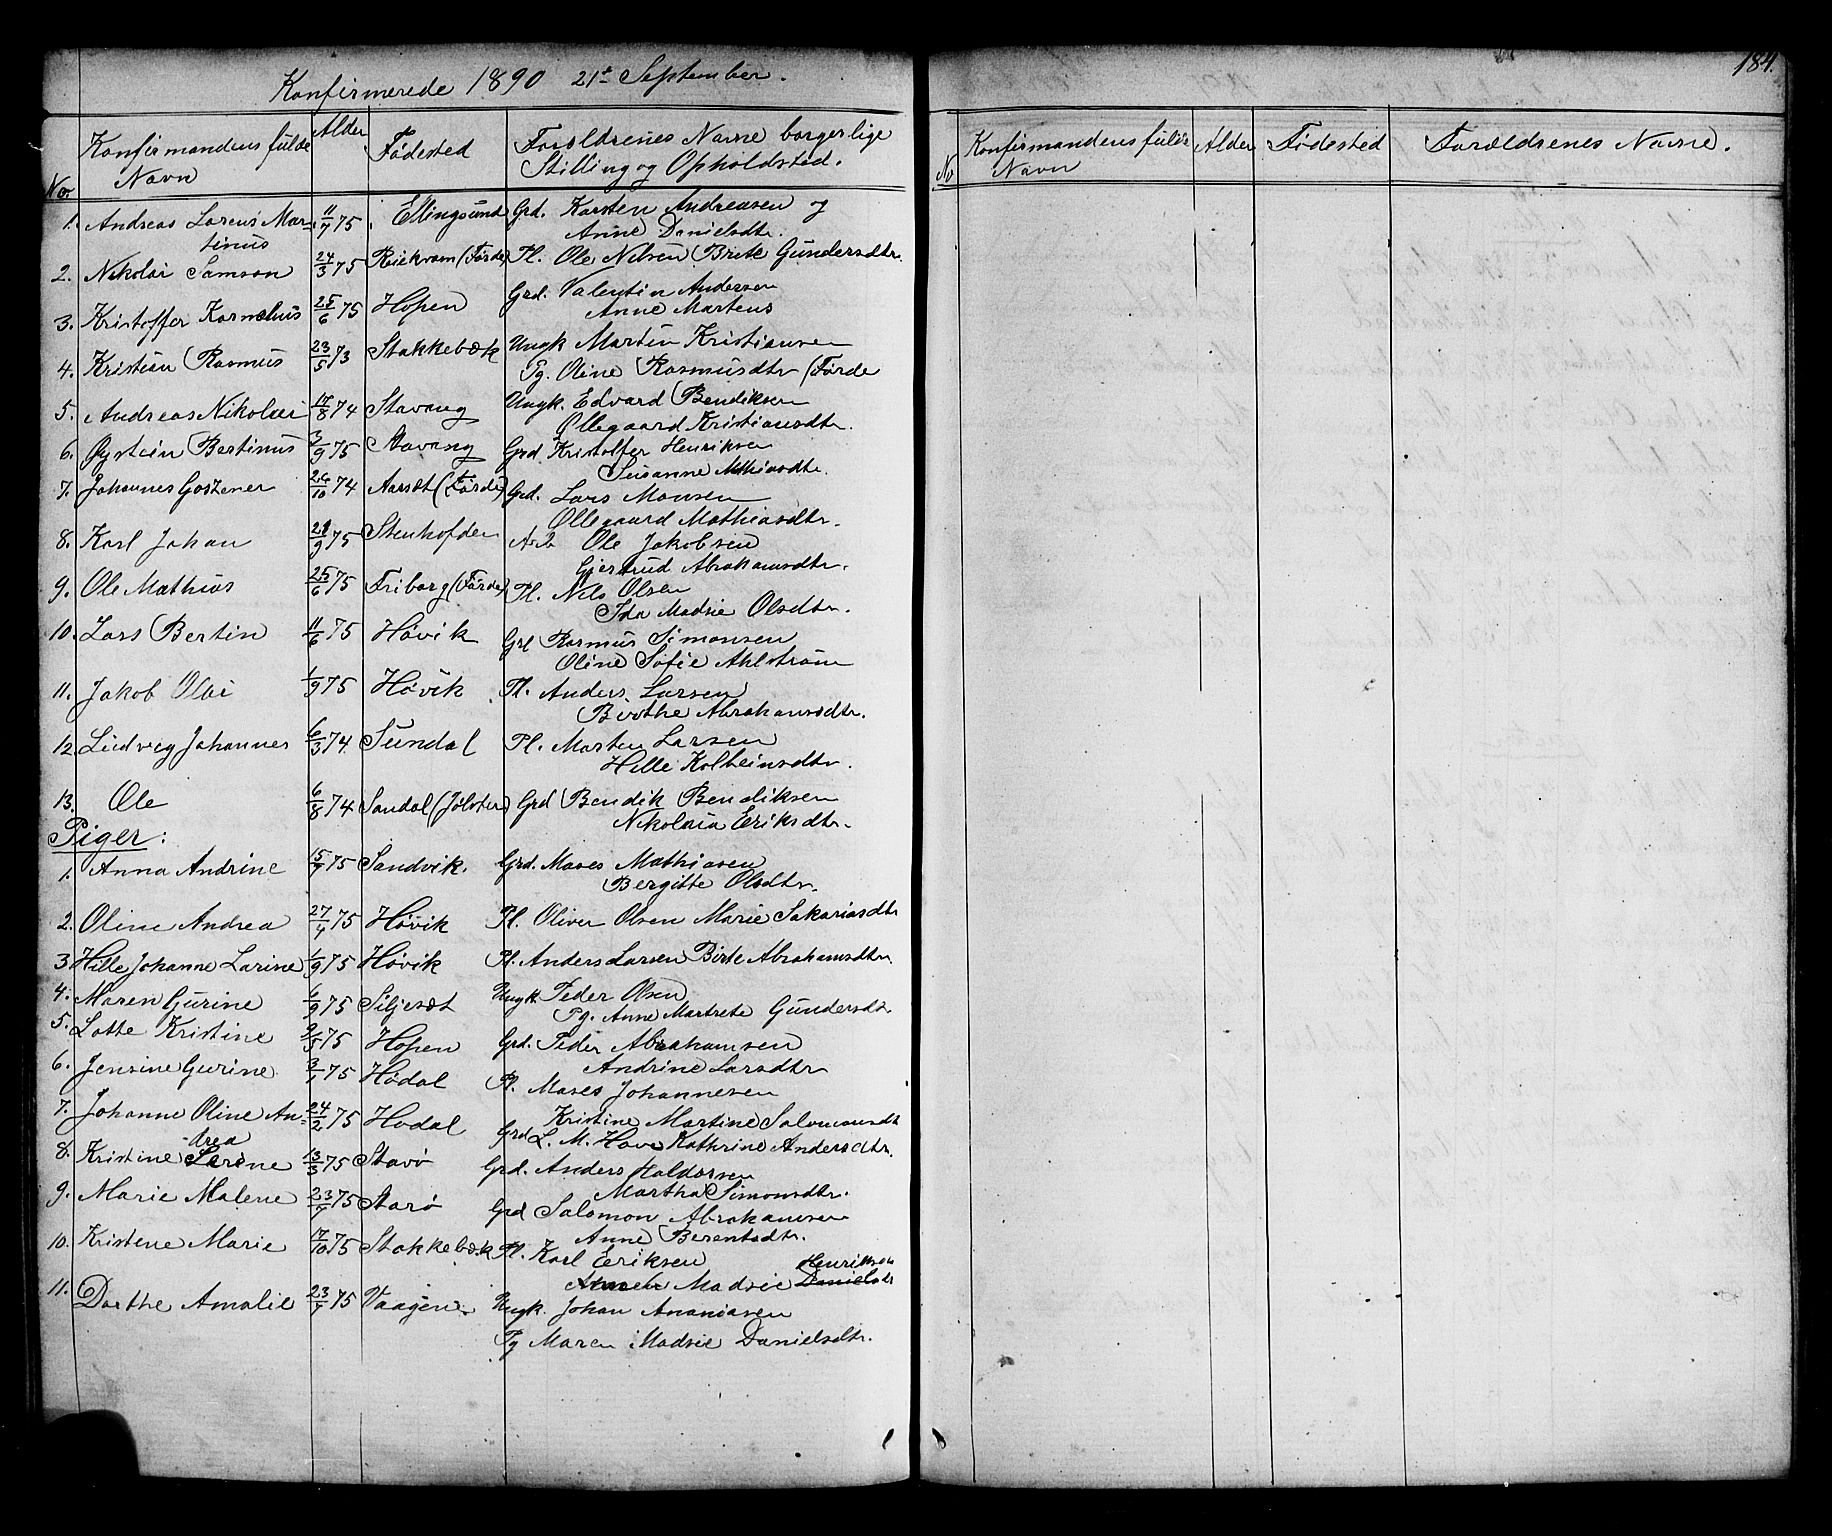 Konfirmerede 1890 21st September.
No. Konfirmandens fulde Navn Alder Fødested Forældrenes Navne borgerlige Stilling og Opholdsted.
1. Andreas Lorens Mar- 11/7 75 Ellingsund Grd. Karsten Andreasen og
tinus Anne Danielsdtr.
2. Nikolai Samson 24/3 75 (Førde) Pl. Ole Nilsen Brite Gundersdtr.
3. Kristoffer Kornelius 25/6 75 Hopen Grd. Valentin Andersen
Anne Martens
4. Kristian Rasmus 23/5 73 Stakkebæk Ungk Martin Kristiansen
Pg. Oline Rasmusdtr (Førde
5. Andreas Nikolai 14/8 74 Stavang Ungk. Edvard Bendiksen
Ollegaard Kristiansdtr.
6. Øystein Bertinus 3/9 75 Stavang Grd Kristoffer Henriksen
Susanne Mthiasdtr.
7. Johannes Gostener 26/10 74 Aarsæt (Førde) Grd. Lars Monsen
Ollegaard Mathiasdtr.
8. Karl Johan 21/9 75 Stenhofden Arb Ole Jakobsen
Gjertrud Abrahamsdtr.
9. Ole Mathias 25/6 75 Friborg (Førde) Pl. Nils Olsen
Ida Madsie Olsdtr.
10. Lars Bertin 11/6 75 Høvik Grd Rasmus Simonsen
Oline Sofie Ahlstrøm
11. Jakob Olai 1/9 75 Høvik Pl. Anders Larsen
Birthe Abrahamsdtr.
12. Ludvig Johannes 6/3 74. Sundal Pl. Morten Larsen
Hille Kolbeinsdtr.
13. Ole 6/8 74 Sandal (Jølster) Grd Bendik Bendiksen
Nikolaia Eriksdtr.
Piger:
1. Anna Andrine 15/7 75 Sandvik. Grd. Moses Mathiasen
Bergitte Olsdtr.
2. Oline Andrea 27/4 75 Høvik Pl. Oliver Olsen Marie Sakariasdtr
3 Hille Johanne Larine 1/9 75 Høvik Pl. Anders Larsen Birte Abrahamsdtr.
4. Maren Gurine 6/9 75 Siljesæt Ungk. Peder Olsen
Pg. Anne Martrete Gundersdtr.
5. Lotte Kristine 9/5 75 Hopen Grd. Peder Abrahamsen
Andrine Larsdtr
6. Jensine Gurine 3/1 75 Hødal Pl. Moses Johannesen
Kristine Martine Salomonsdt
7. Johanne Oline An- 24/2 75 Hodal Grd L. M. Hove Kathrine Andersdtr.
drea
8. Kristine Serine 13/3 75 Stavø Grd. Anders Haldorsen
Martha Simonsdtr.
9. Marie Malene 23/7 75 Starø Grd Salomon Abrahamsen
Anne Berentsdtr.
10. Kristene Marie 17/10 75 Stakkebæk Pl. Karl Eriksen
Madsie Danielsdtr Henriksen
11. Dorthe Amalie 23/7 75 Vaagene. Ungk. Johan Ananiasen
Pg Maren Madsie Danielsdtr.
184.
No Konfirmandens fulde Navn Alder Fødested Forældrenes Navne.